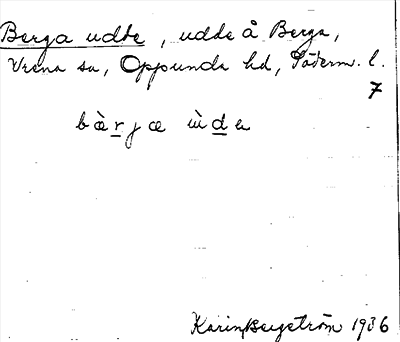 Berga udde, udde å Berga,
Vrena sn, Oppunda hd, Söderm. l.
7
bàrjæ ùdə
Karin Bergström 1936